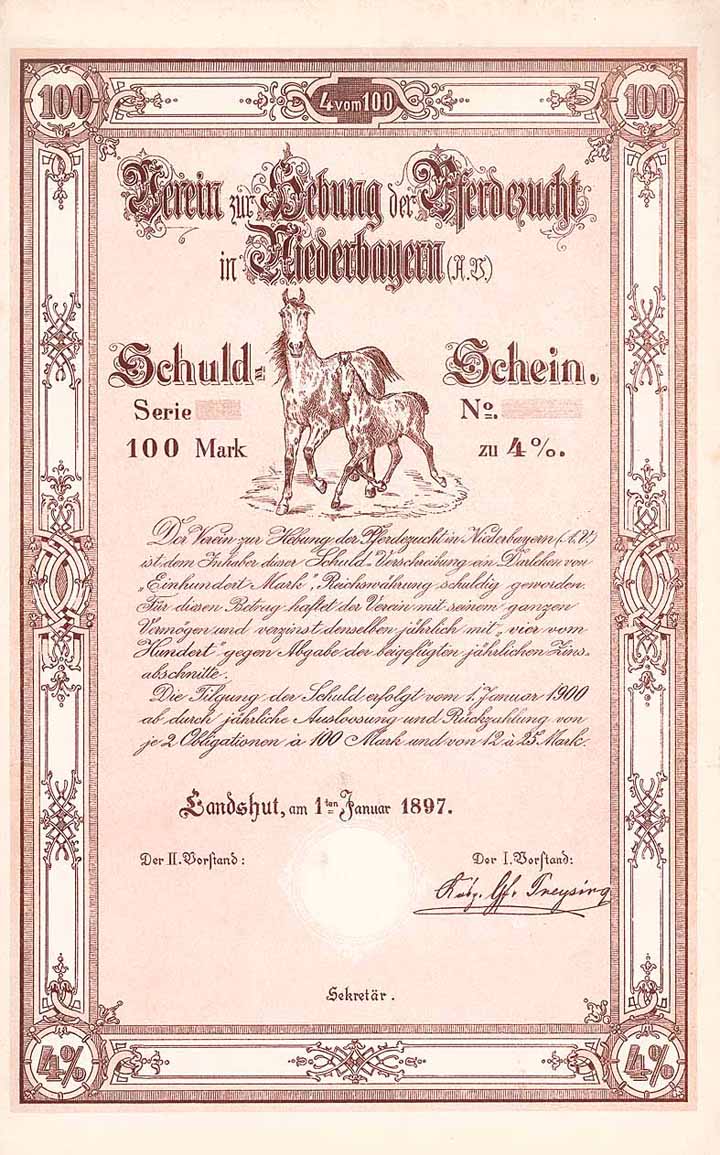 100 4 vom 100 100
Verein zur Hebung der Pferdezucht
in Niederbayern (A.V.)
Schuld= Schein.
Serie No.
100 Mark zu 4%.
Der Verein zur Hebung der Pferdezucht in Niederbayern (A.V.)
ist dem Inhaber dieser Schuld=Verschreibung ein Darlehen von
„Einhundert Mark", Reichswährung schuldig geworden.
Für diesen Betrag haftet der Verein mit seinem ganzen
Vermögen und verzinst denselben jährlich mit „vier vom
Hundert" gegen Abgabe der beigefügten jährlichen Zins=
abschnitte.
Die Tilgung der Schuld erfolgt vom 1. Januar 1900
ab durch jährliche Ausloosung und Rückzahlung von
je 2 Obligationen à 100 Mark und von 12 à 25 Mark.
Landshut, am 1ten Januar 1897.
Der II. Vorstand: Der I. Vorstand:
Preysing
Sekretär.
4% 4%